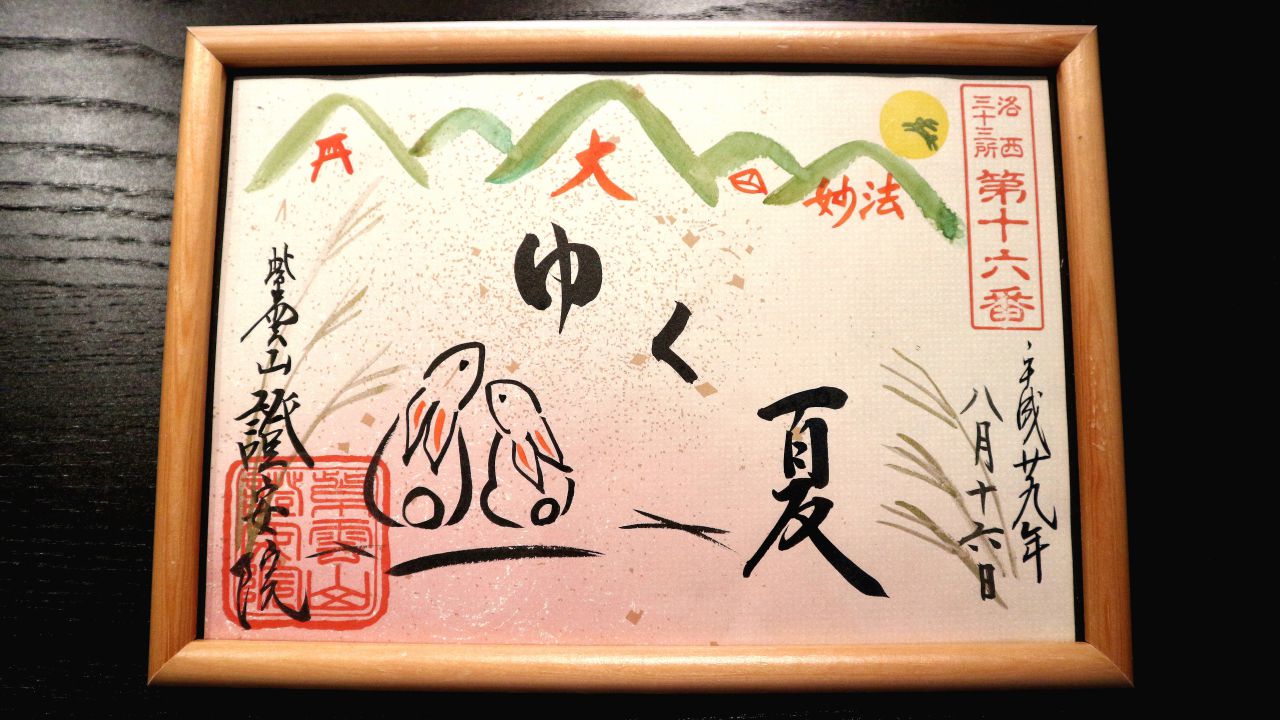 洛西
三十三所
第十六番
平成廿九年
八月十六日
大
妙法
ゆく
夏
紫雲山
證安院